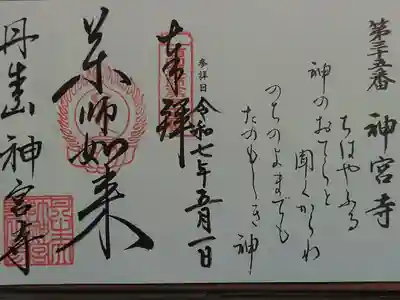 第三十五番 神宮寺
ちはやふる
神のおてらと
聞くからわ
のちのよまでも
たのもしき神
奉拝
参詣日 令和七年五月一日
薬師如来
丹生山 神宮寺